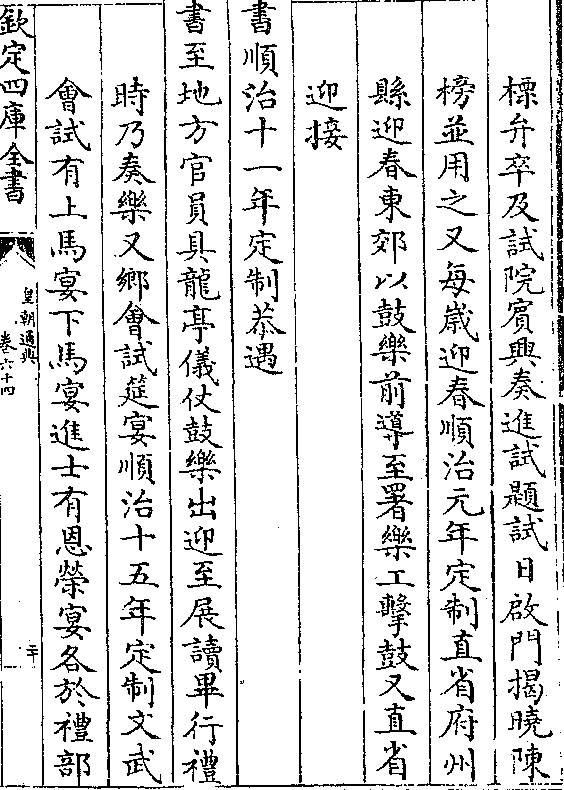 標弁卒及試院賓興奏進試題試日啟門揭曉陳
榜並用之又每歳迎春順治元年定制直省府州
縣迎春東郊以鼓樂前導至署樂工擊鼓又直省
迎接
書順治十一年定制恭遇
書至地方官員具龍亭儀仗鼓樂出迎至展讀畢行禮
時乃奏樂又鄉會試筵宴順治十五年定制文武
會試有上馬宴下馬宴進士有恩榮宴各於禮部
欽定四庫全書
皇朝通典
卷六十四